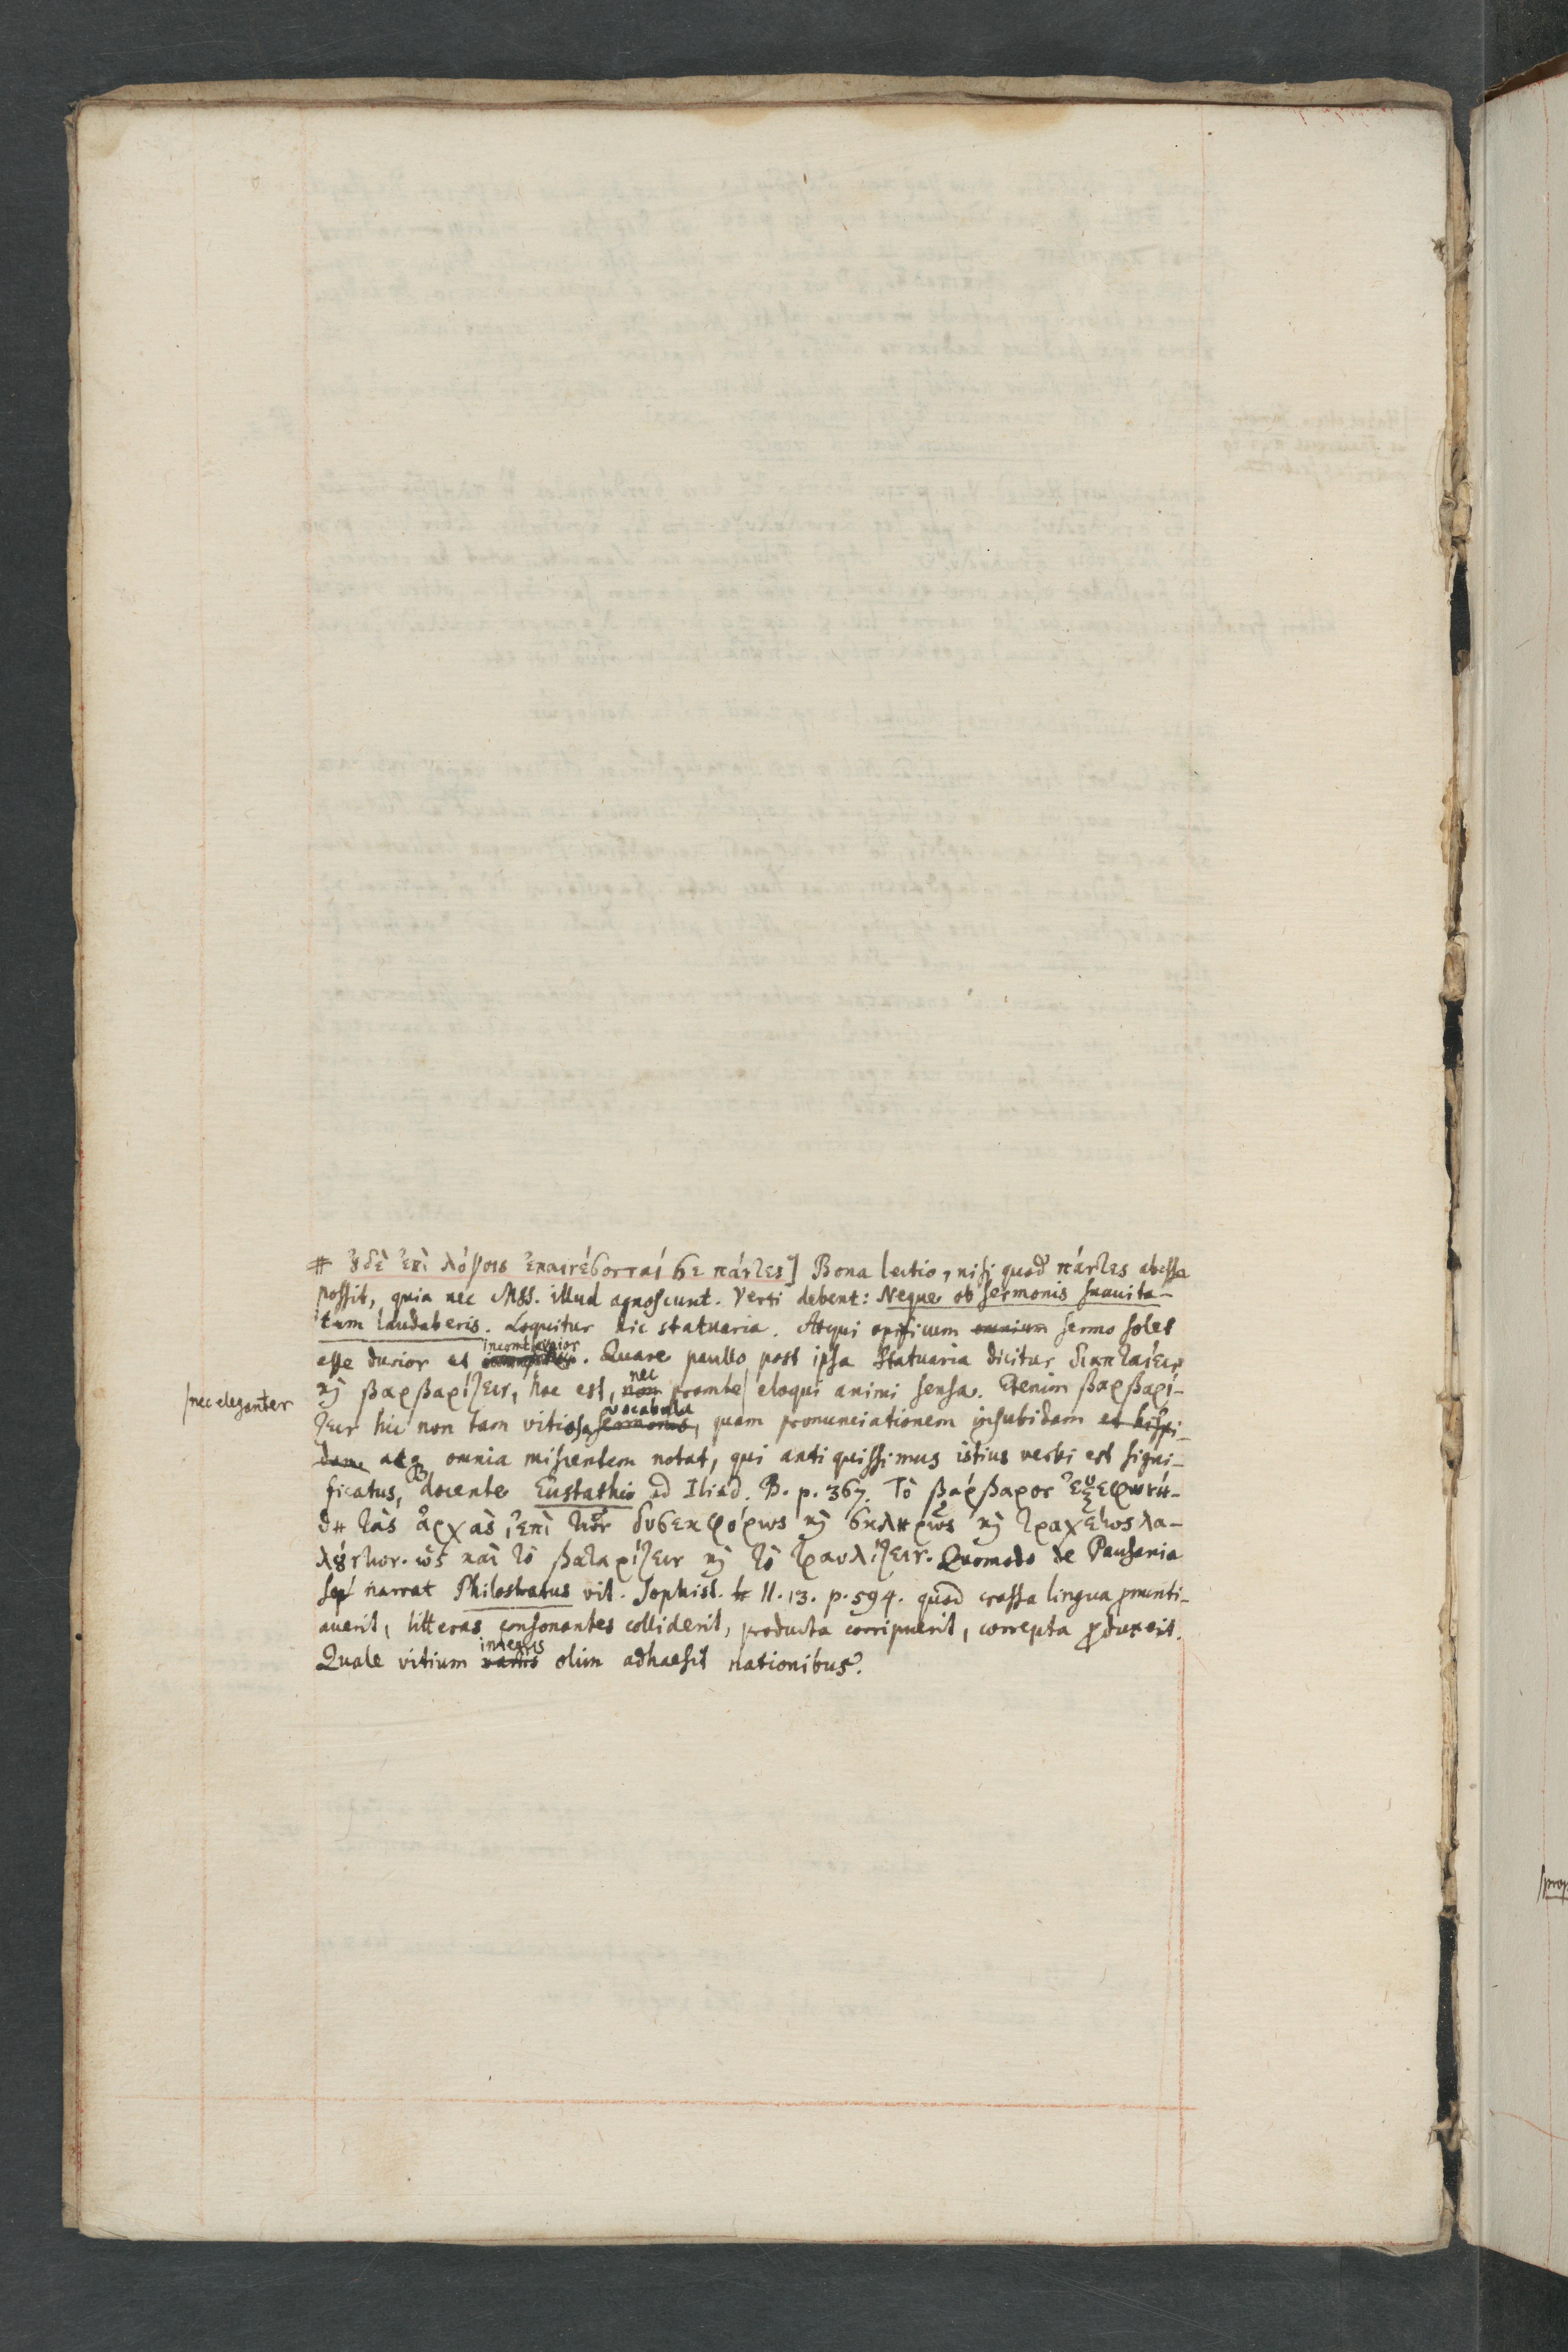 # ȣδὲ ἐπὶ λόγοις ἐπαινέσονταί σε πάντες] Bona lectio, nisi quod πάντες abesse
possit, quia nec MSS. illud agnoscunt. Verti debent: Neque ob sermonis suavita-
tem laudaberis. Loquitur hic statuaria. Atqui opificum omnium sermo solet
incomtior
esse durior et . Quare paullo post ipsa Statuaria dicitur διαπταίειν
nec
ϗ βαρβαρίζειν, hoc est, non promte/ eloqui animi sensa. Etenim βαρβαρί-
/nec eleganter
vocabula
ζειν hic non tam vitiosa sermonis, quam pronunciationem insubidam et hispi-
dam atq omnia miscentem notat, qui antiquissimus istius verbi est signi-
ficatus, docente Eustathio ad Iliad. B. p. 367. Τὸ βάρβαρος ἐξεφωνή-
θη τὰς ἀρχὰς, ἐπὶ τῶν δυσεκφόρως ϗ σκληρῶς ϗ τραχέως λα-
λȣντων. ὡς καὶ τὸ βαταρίζειν ϗ τὸ τραυλίζειν. Quomodo de Pausania
narrat Philostratus vit. Sophist. II. 13. p. 594. quod crassa lingua pnunti-
averit, litteras consonantes colliderit, producta corripuerit, correpta pduxerit.
integris
Quale vitium variis olim adhaesit nationibus.